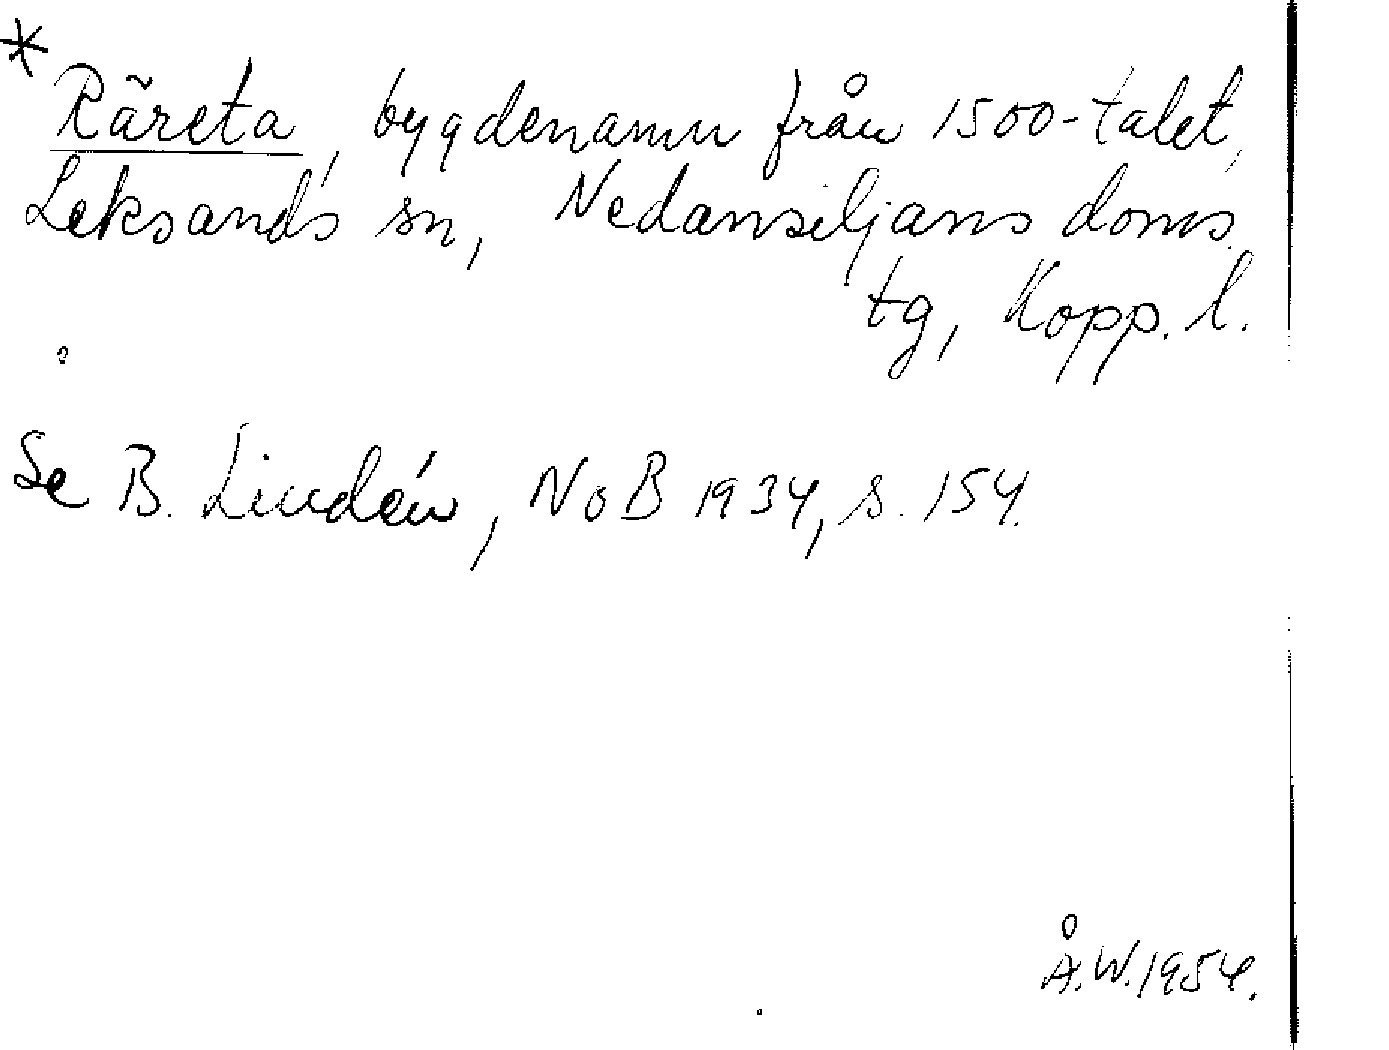 * Rãreta, bygdenamn från 1500-talet,
Leksands sn, Nedansiljans doms.
tg, Kopp. l.
Se B. Lindén, NoB 1934, s. 154.
Å.W. 1954.